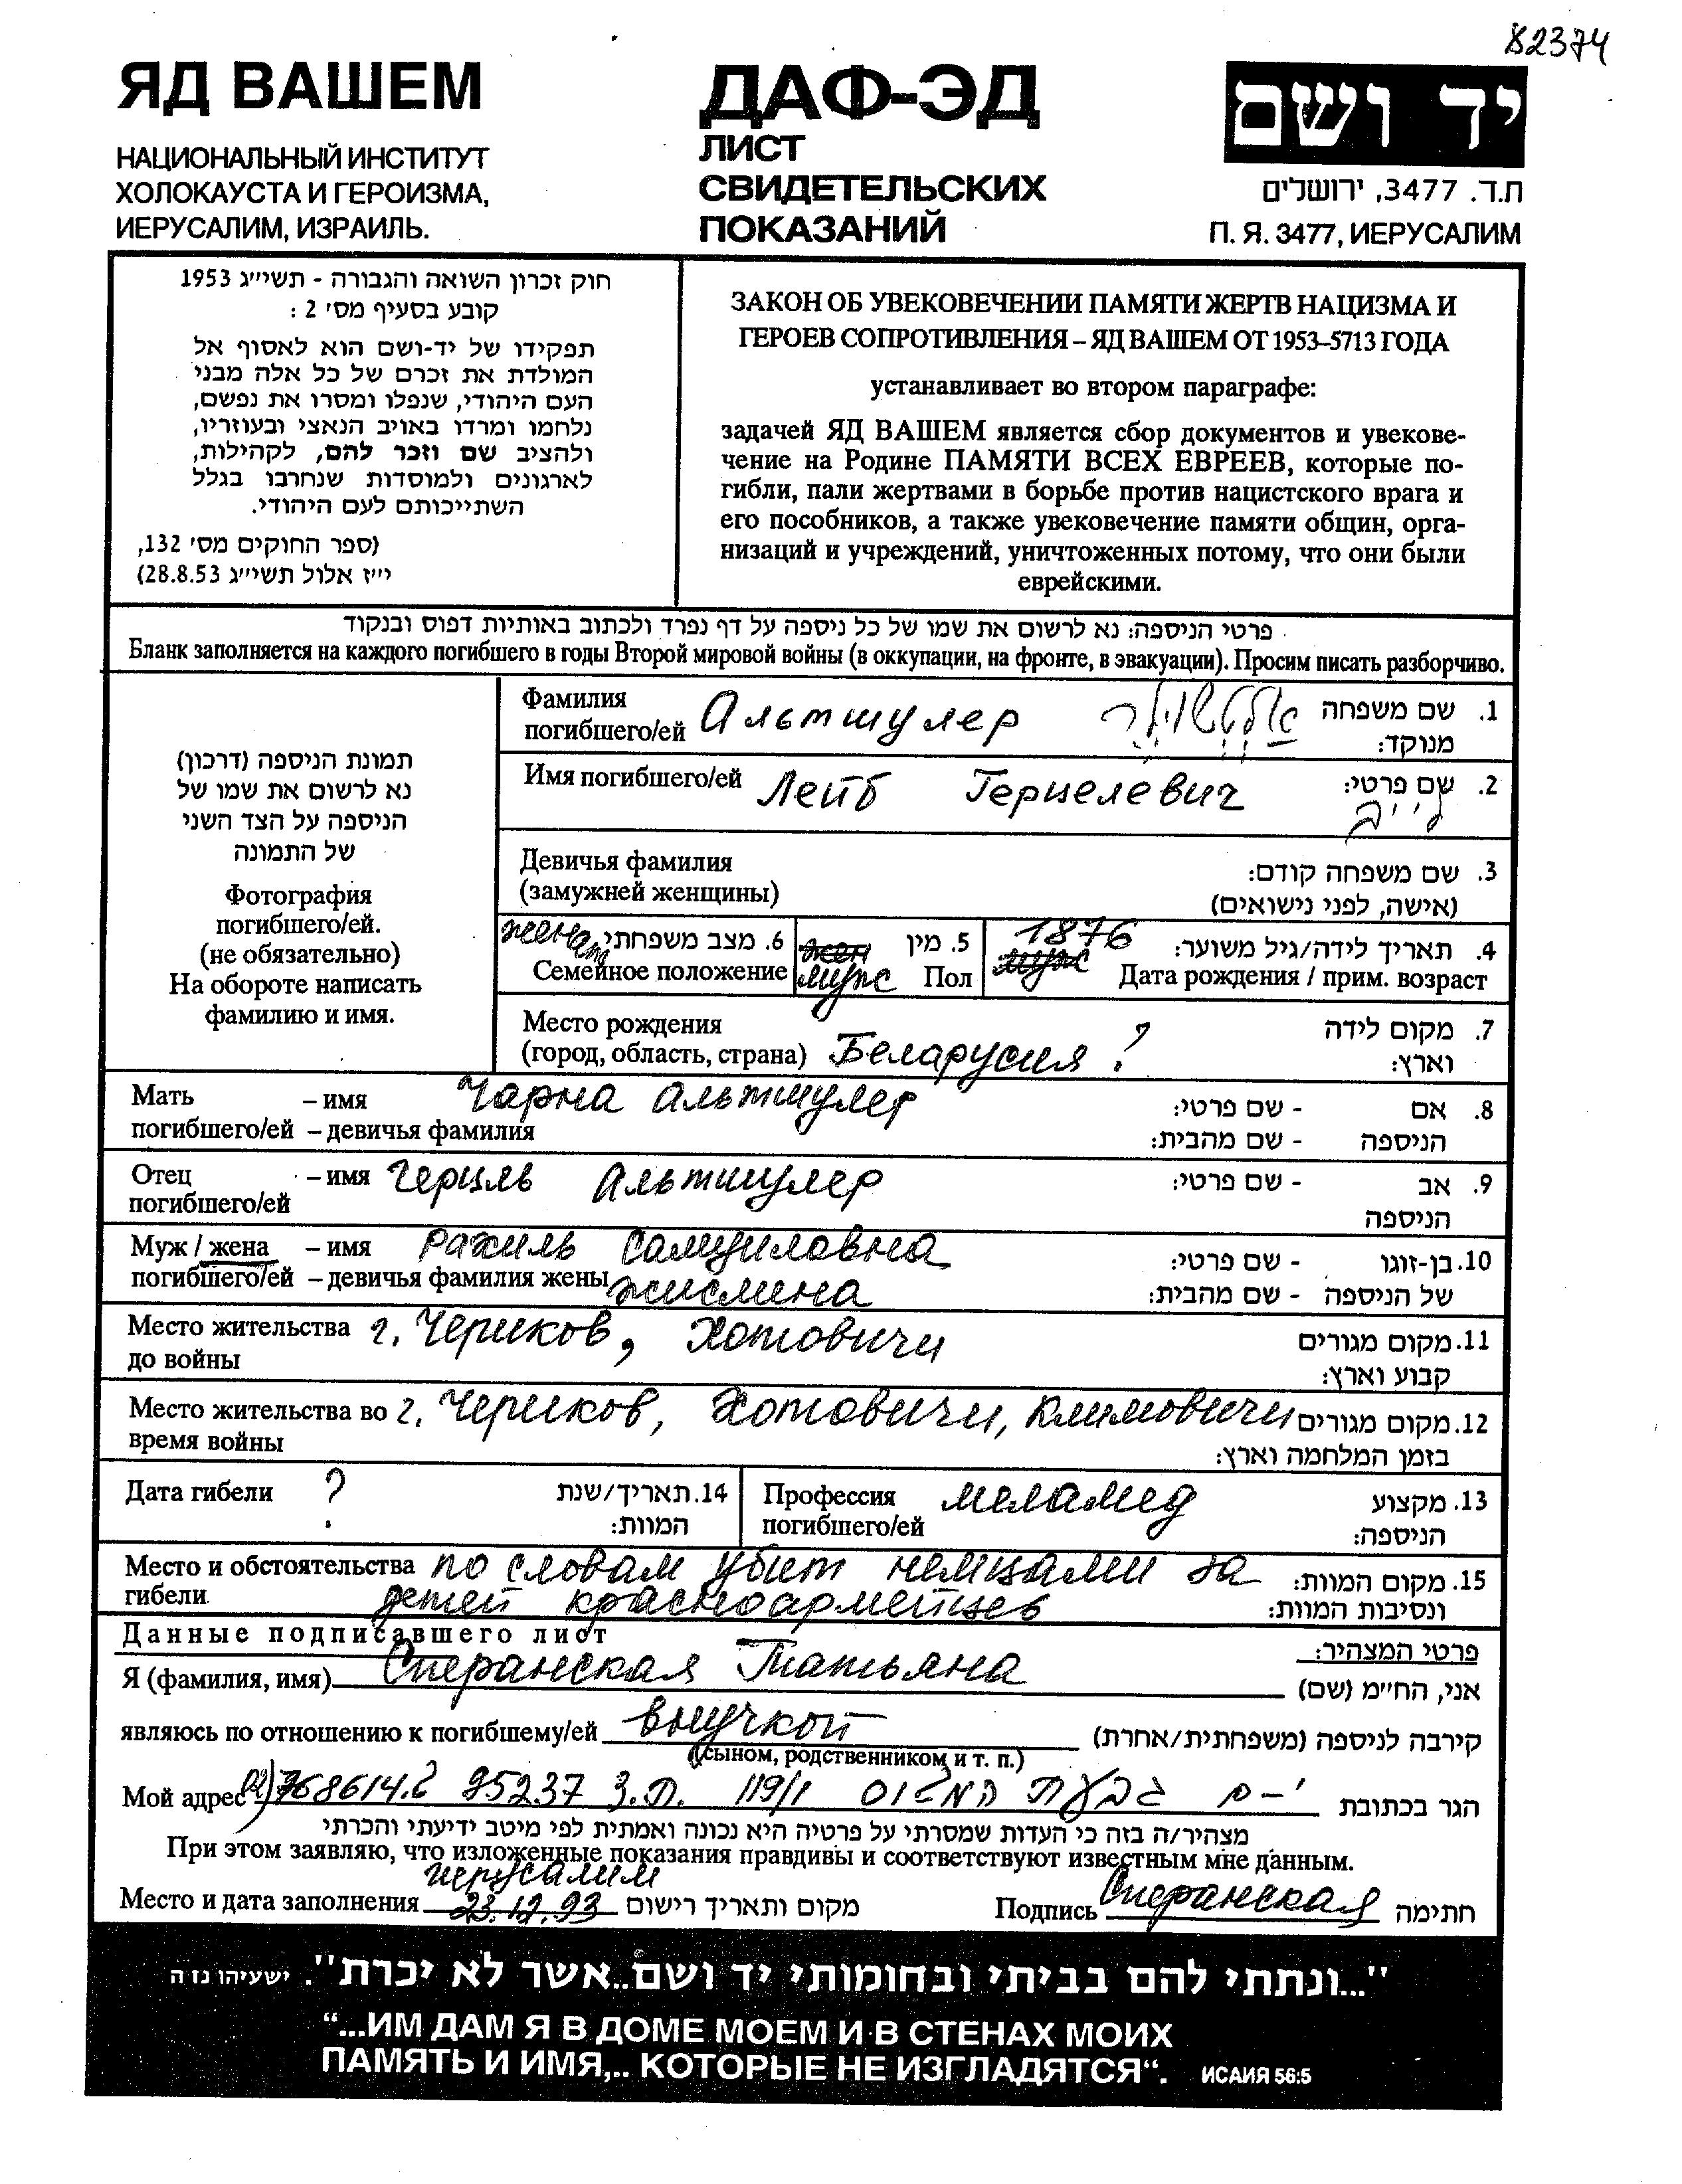 82374
ЯД ВАШЕМ
НАЦИОНАЛЬНЫЙ ИНСТИТУТ
ХОЛОКАУСТА И ГЕРОИЗМА,
ИЕРУСАЛИМ, ИЗРАИЛЬ.
ДАФ-ЭД
ЛИСТ
СВИДЕТЕЛЬСКИХ
ПОКАЗАНИЙ
יד ושם
ת.ד. 3477, ירושלים
П. Я. 3477, ИЕРУСАЛИМ
חוק זכרון השואה והגבורה - תשי״ג 1953
קובע בסעיף מס׳ 2 :
תפקידו של יד-ושם הוא לאסוף אל
המולדת את זכרם של כל אלה מבני
העם היהודי, שנפלו ומסרו את נפשם,
נלחמו ומרדו באויב הנאצי ובעוזריו,
ולהציב שם וזכר להם, לקהילות,
לארגונים ולמוסדות שנחרבו בגלל
השתייכותם לעם היהודי.
(ספר החוקים מס׳ 132,
י״ז אלול תשי״ג 28.8.53)
ЗАКОН ОБ УВЕКОВЕЧЕНИИ ПАМЯТИ ЖЕРТВ НАЦИЗМА И
ГЕРОЕВ СОПРОТИВЛЕНИЯ – ЯД ВАШЕМ ОТ 1953–5713 ГОДА
устанавливает во втором параграфе:
задачей ЯД ВАШЕМ является сбор документов и увекове-
чение на Родине ПАМЯТИ ВСЕХ ЕВРЕЕВ, которые по-
гибли, пали жертвами в борьбе против нацистского врага и
его пособников, а также увековечение памяти общин, орга-
низаций и учреждений, уничтоженных потому, что они были
еврейскими.
פרטי הניספה: נא לרשום את שמו של כל ניספה על דף נפרד ולכתוב באותיות דפוס ובנקוד
Бланк заполняется на каждого погибшего в годы Второй мировой войны (в оккупации, на фронте, в эвакуации). Просим писать разборчиво.
תמונת הניספה (דרכון)
נא לרשום את שמו של
הניספה על הצד השני
של התמונה
Фотография
погибшего/ей.
(не обязательно)
На обороте написать
фамилию и имя.
Фамилия
погибшего/ей Альтшулер אלטשולר
1. שם משפחה
מנוקד:
Имя погибшего/ей Лейб Герцелевич
2. שם פרטי:
לייב
Девичья фамилия
(замужней женщины)
3. שם משפחה קודם:
(אישה, לפני נישואים)
женат 6. מצב משפחתי
Семейное положение
жен 5. מין
муж Пол
1876
4. תאריך לידה/גיל משוער:
муж Дата рождения / прим. возраст
Место рождения
(город, область, страна) Беларусия ?
7. מקום לידה
וארץ:
Мать – имя Чарна Альтшулер
погибшего/ей – девичья фамилия
8. אם - שם פרטי:
הניספה - שם מהבית:
Отец – имя Герцль Альтшулер
погибшего/ей
9. אב - שם פרטי:
הניספה
Муж / жена – имя Рахиль Самуиловна
погибшего/ей – девичья фамилия жены Жислина
10. בן-זוגו - שם פרטי:
של הניספה - שם מהבית:
Место жительства г. Чериков, Хотовичи
до войны
11. מקום מגורים
קבוע וארץ:
Место жительства во г. Чериков, Хотовичи, Климовичи
время войны
12. מקום מגורים
בזמן המלחמה וארץ:
Дата гибели ?
14. תאריך/שנת
המוות:
Профессия меламед
погибшего/ей
13. מקצוע
הניספה:
Место и обстоятельства по словам убит немцами за
гибели. детей красноармейцев
15. מקום המוות:
ונסיבות המוות:
Данные подписавшего лист
פרטי המצהיר:
Я (фамилия, имя) Сперанская Татьяна
אני, הח״מ (שם)
являюсь по отношению к погибшему/ей внучкой
(сыном, родственником и т. п.)
קירבה לניספה (משפחתית/אחרת)
Мой адрес 02)768614.ל 95237 ת.ד. 119/1 גבעת המבטר י-ם
הגר בכתובת
מצהיר/ה בזה כי העדות שמסרתי על פרטיה היא נכונה ואמתית לפי מיטב ידיעתי והכרתי
При этом заявляю, что изложенные показания правдивы и соответствуют известным мне данным.
иерусалим
Место и дата заполнения 23.12.93 מקום ותאריך רישום
Подпись Сперанская חתימה
"...ונתתי להם בביתי ובחומותי יד ושם...אשר לא יכרת". ישעיהו נז ה
“...ИМ ДАМ Я В ДОМЕ МОЕМ И В СТЕНАХ МОИХ
ПАМЯТЬ И ИМЯ,.. КОТОРЫЕ НЕ ИЗГЛАДЯТСЯ“. ИСАИЯ 56:5